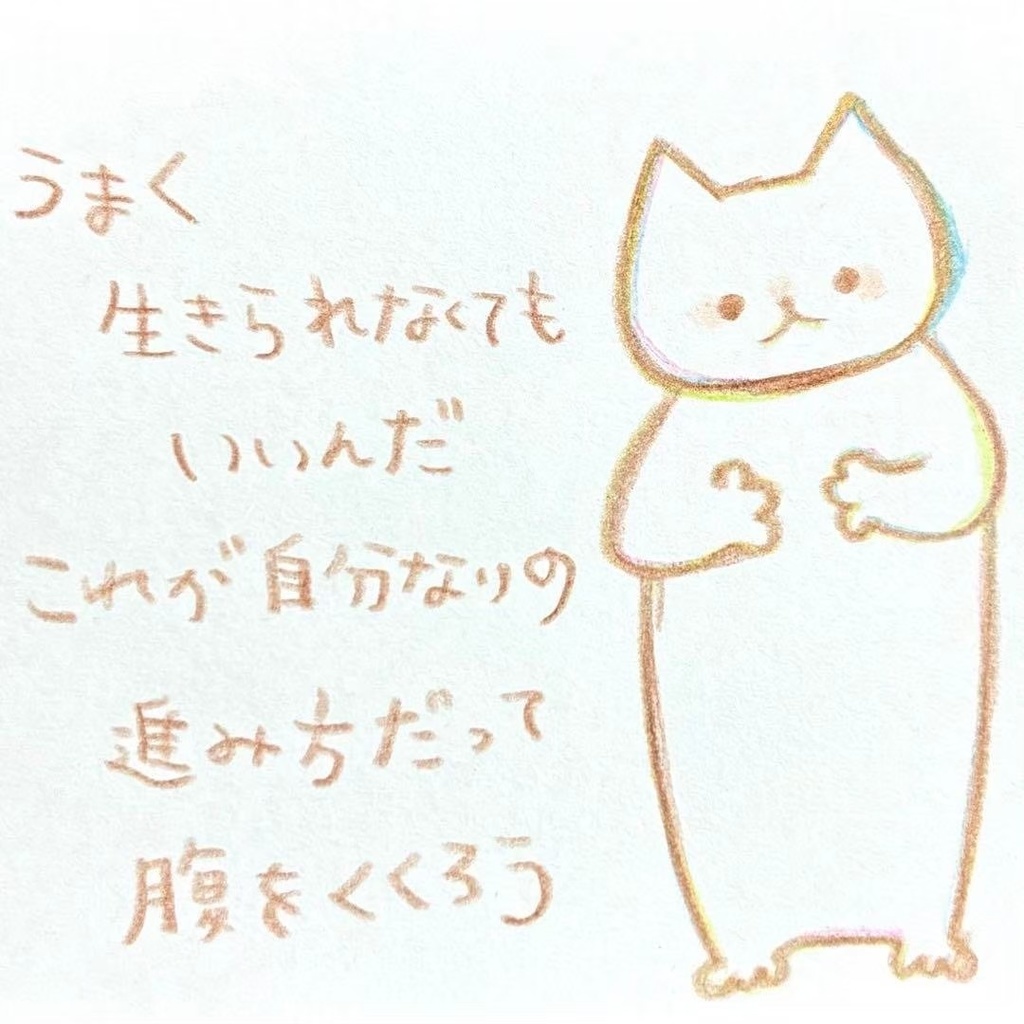 うまく
生きられなくても
いいんだ
これが自分なりの
進み方だって
腹をくくろう